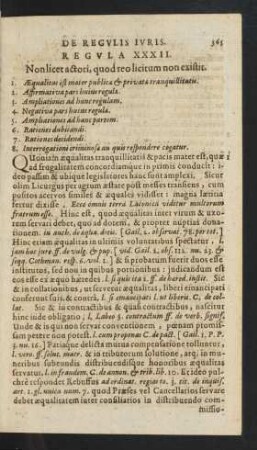 DE REGVLIS IVRIS. 365
REGVLA XXXII.
Non licet actori, quod reo licitum non existit.
1. Æqualitas est mater publica & privata tranquillitatis.
2. Affirmativa pars huius regula.
3. Ampliationes ad hanc regulam.
4. Negativa pars huius regula.
5. Ampliationes ad hanc partem.
6. Rationes dubitandi.
7. Rationes decidendi.
8. Interrogatione criminosa an quis respondere cogatur.
QVoniam æqualitas tranquillitatis & pacis mater est, quæ
ad frugalitatem concordiamque in primis conducit: ideo
passim & ubique legislatores hanc sunt amplexi. Sicut
olim Licurgus per agrum æstate post messes transiens, cum
positos acervos similes & æquales vidisset: magna lætitia
fertur dixisse. Ecce omnis terra Laconica videtur multorum
fratrum esse. Hinc est, quod æqualitas inter virum & uxorem
servari debet, quo ad dotem, & propter nuptias donationem.
in auth. de æqua. dote. [Gail. 2. observat. 78. per tot.]
Hinc etiam æqualitas in ultimis voluntatibus spectatur, l.
jam hoc jure ff. de vulg. & pup. [vid. Gail. 2. obs. 122. nu. 23. &
seqq.
instituto, sed non in quibus portionibus: judicandum est
eos esse ex æquo hæredes. l. si quis ita 2. ff. de hæred. instit. Sic
& in collationibus, ut servetur æqualitas, liberi emancipati
conferunt suis, & contra. l. si emancipati l. ut liberis C. de collat.
Sic & in contractibus & quasi contractibus, nascitur
hinc inde obligatio; l. Labeo 5. contractum ff. de verb. signif.
Unde & in qua non servat conventionem, pœnam promissam
petere non potest. l. cum proponas C. de pact. [Gail. 2. P. F.
nu. 11.] Pariaque delicta mutua compensatione tolluntur,
l. viro. ff. solut. matr. & in tributorum solutione, atq; in muneribus
subeundis distribuendisque honoribus æqualitas
servatur, l. in fraudem. C. de annon. & trib. lib. 10. Et ideo pulchrè
respondet Rebuffus ad ordinat. regias to. 3. tit. de inquis.
art. 1. gl. unica num. 7. quod Præses vel Cancellarios servare
debet æqualitatem inter consiliarios in distribuendo com-
missio-